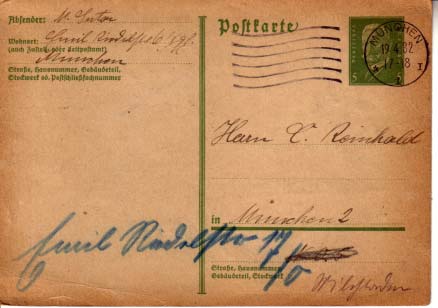 Absender: M.
Wohnort: Emil
(auch Zustell- oder Leitpostamt)
München
Straße, Hausnummer, Gebäudeteil,
Stockwerk od. Postschließfachnummer
Postkarte
MÜNCHEN
19.4.32
17-18
5
Herrn C. Reinhold
in München 2
Emil Riedelstr 17
Straße, Hausnummer,
Gebäudeteil,
Stockwerk